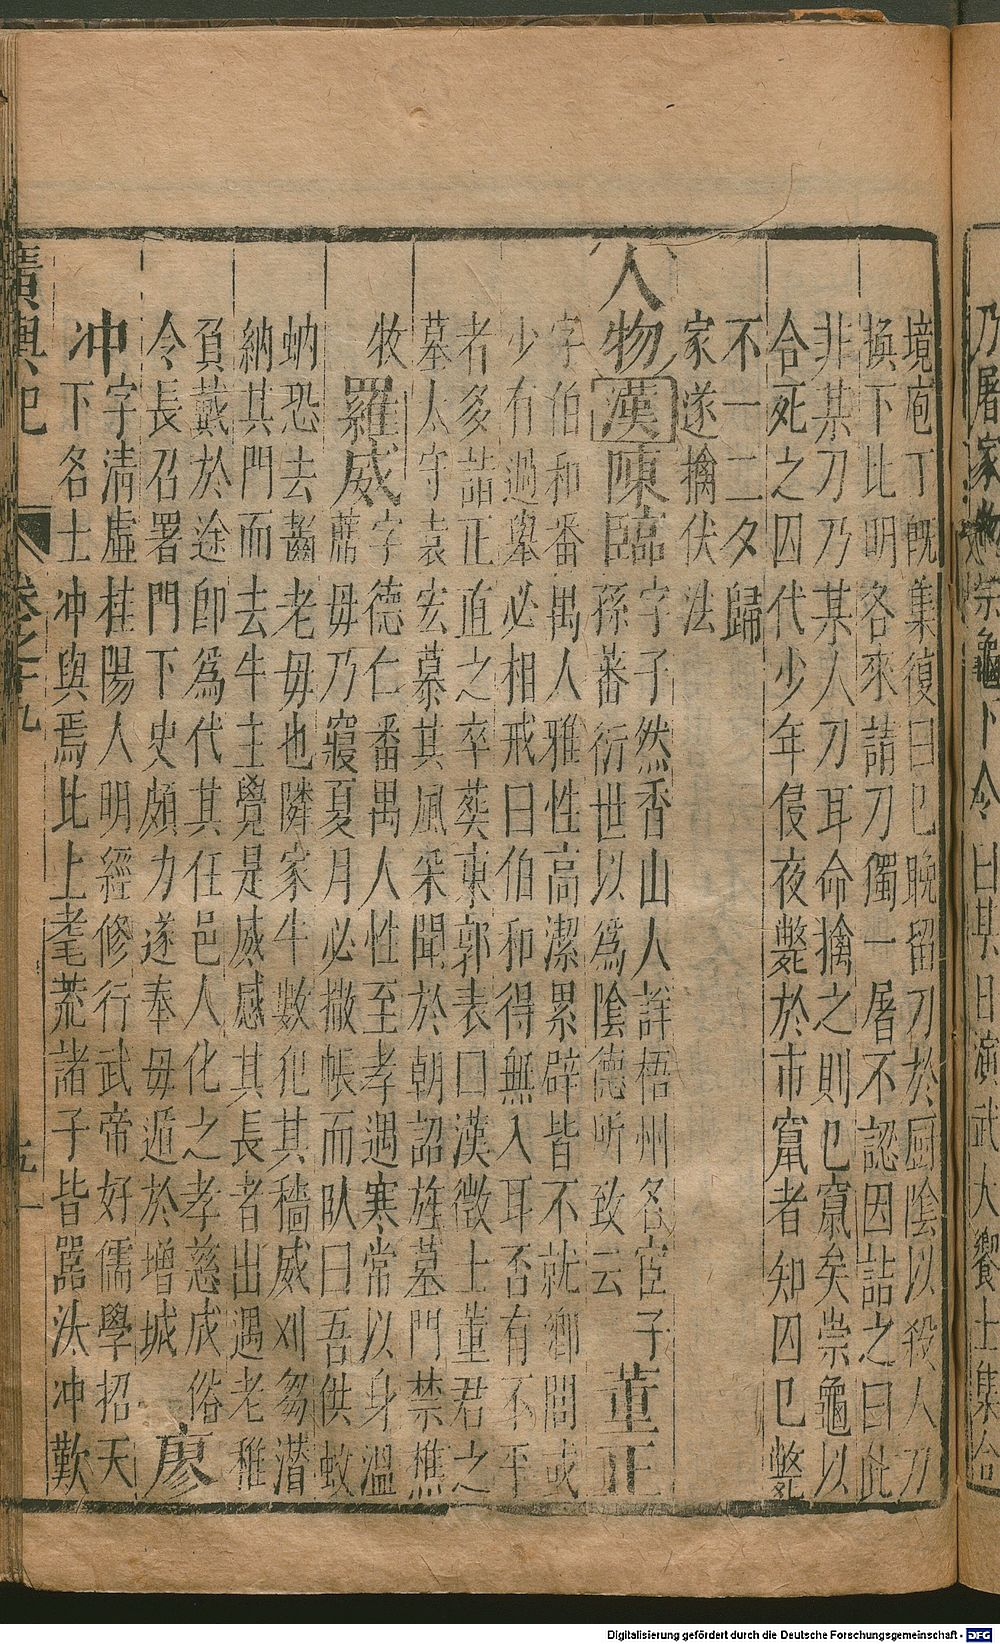 乃屠家
崇龜下令曰其日演武大饗士集合
境庖丁旣集復曰已晚留刀於厨陰以殺人刀
換下比明各來請刀獨一屠不認因詰之曰此
非某刀乃某人刀耳命擒之則已竄矣崇龜以
合死之囚代少年侵夜斃於市竄者知囚已斃
不一二夕歸
家遂擒伏法
人物漢陳臨字子然香山人詳梧州名宦子
孫蕃衍世以爲陰德所致云董正
字伯和番禺人雅性高潔累辟皆不就鄉閭或
少有過舉必相戒曰伯和得無入耳否有不平
者多詣正直之卒葬東郭表曰漢徵士董君之
墓太守袁宏慕其風采聞於朝詔旌墓門禁樵
牧羅威字德仁番禺人性至孝遇寒常以身溫
蓆毋乃寢夏月必撒帳而臥曰吾供蚊
蚋恐去齧老毋也隣家牛數犯其穡威刈芻潜
納其門而去牛主覺是威感其長者出遇老稚
負戴於途卽爲代其任邑人化之孝慈成俗
令長召署門下史頗力遂奉毋遁於增城廖
冲字清虛桂陽人明經修行武帝好儒學招天
下名士冲與焉比上耄荒諸子皆嚚汰冲歎
廣輿記 卷之十九